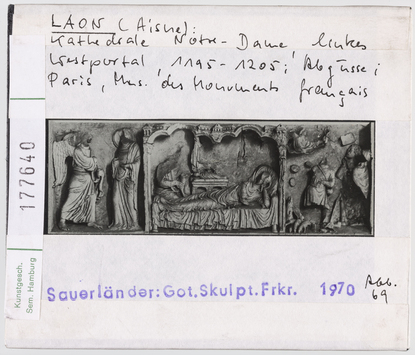 LAON (Aisne):
Kathedrale Nôtre-Dame, linkes
Westportal, 1195-1205; Abgüsse i
Paris, Mus. des Monuments français
177640
Kunstgesch.
Sem. Hamburg
Sauerländer: Got. Skulpt. Frkr. 1970 Abb.
69